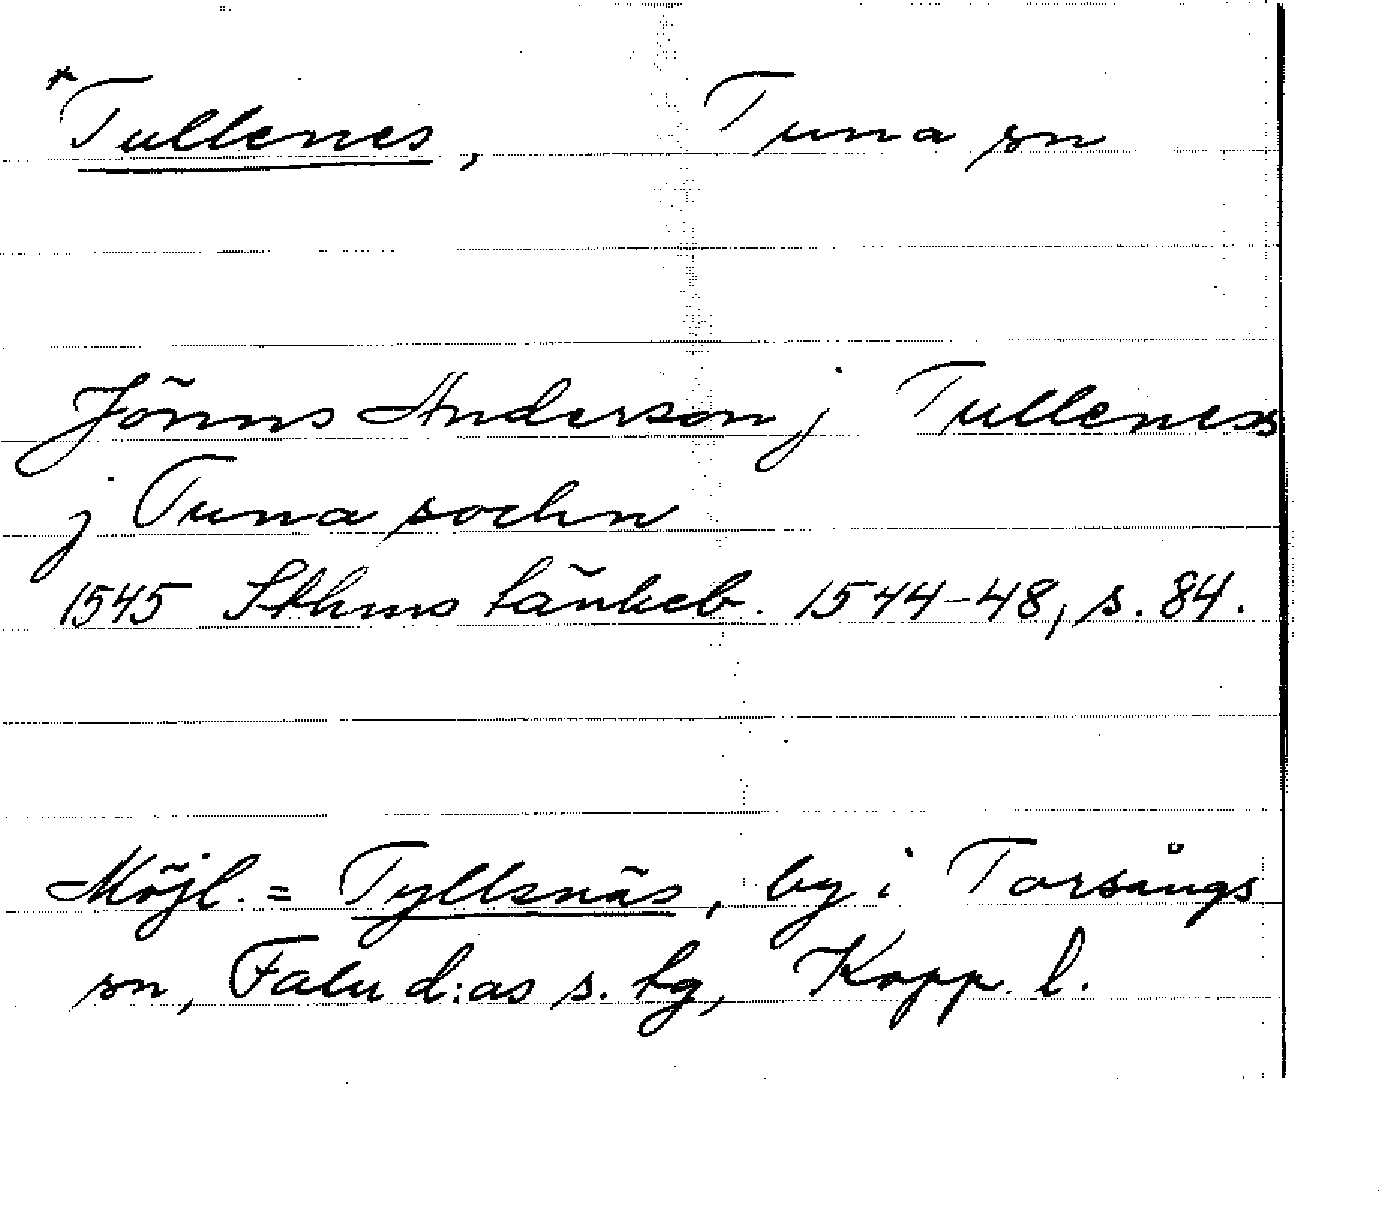 *Tullenes, Tuna sn
Jönns Anderson j Tulleness
j Tuna sochn
1545 Sthms tänkeb. 1544-48, s. 84.
Möjl. = Tyllsnäs, by i Torsångs
sn, Falu d:as s. tg, Kopp. l.